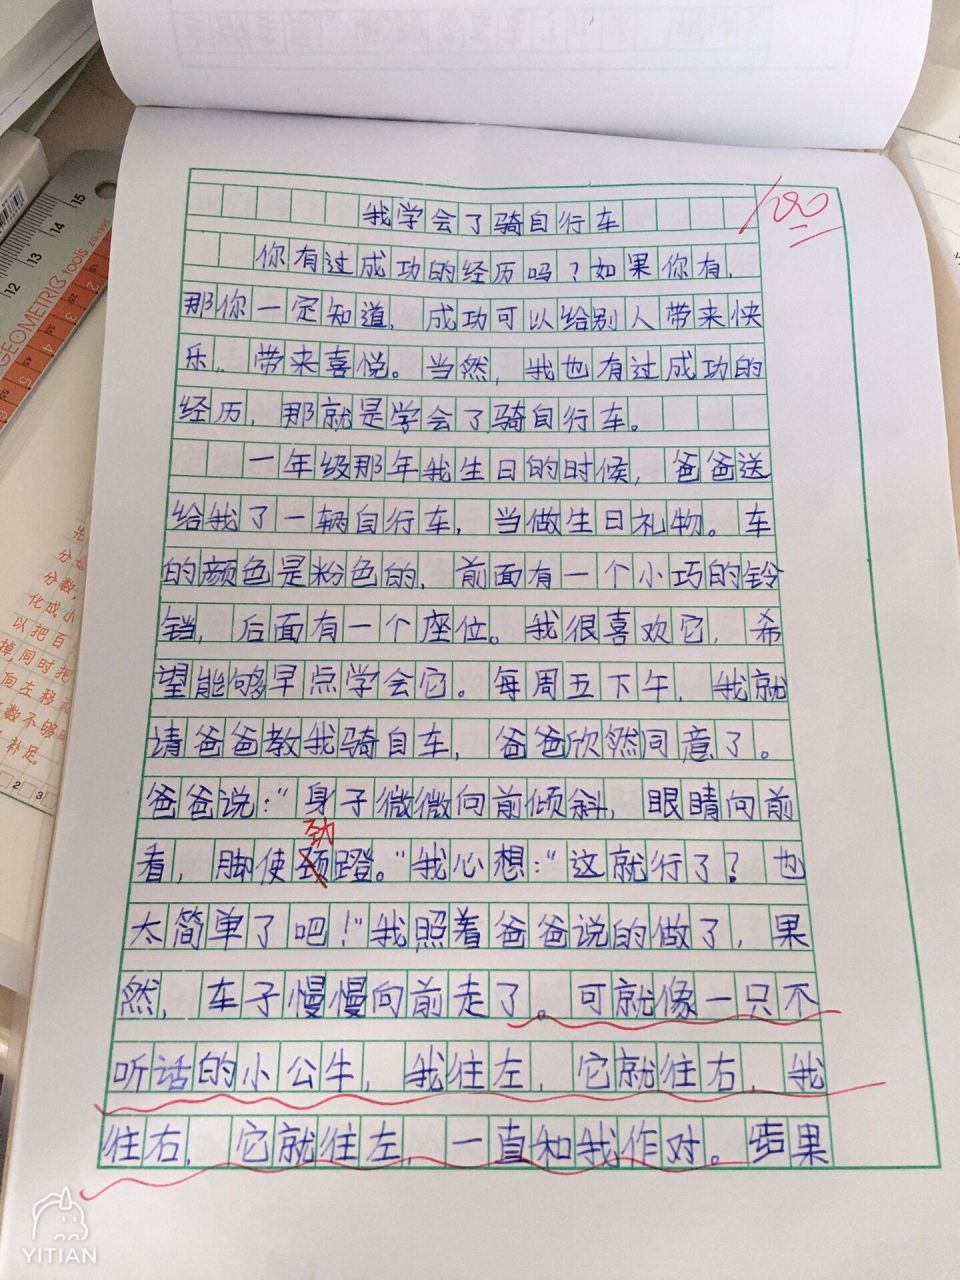 100
我学会了骑自行车
你有过成功的经历吗？如果你有，
那你一定知道，成功可以给别人带来快
乐，带来喜悦。当然，我也有过成功的
经历，那就是学会了骑自行车。
一年级那年我生日的时候，爸爸送
给我了一辆自行车，当做生日礼物。车
的颜色是粉色的，前面有一个小巧的铃
铛，后面有一个座位。我很喜欢它，希
望能够早点学会它。每周五下午，我就
请爸爸教我骑自车，爸爸欣然同意了。
爸爸说：“身子微微向前倾斜，眼睛向前
劲
看，脚使颈蹬。”我心想：“这就行了？也
太简单了吧！”我照着爸爸说的做了，果
然，车子慢慢向前走了。可就像一只不
听话的小公牛，我往左，它就往右，我
往右，它就往左，一直和我作对。结果
15
14
13
12
GEOMETRIB tools
分数，
化成小
以把百
掉，同时把
向左移
数不够
补足。
2 3
YITIAN